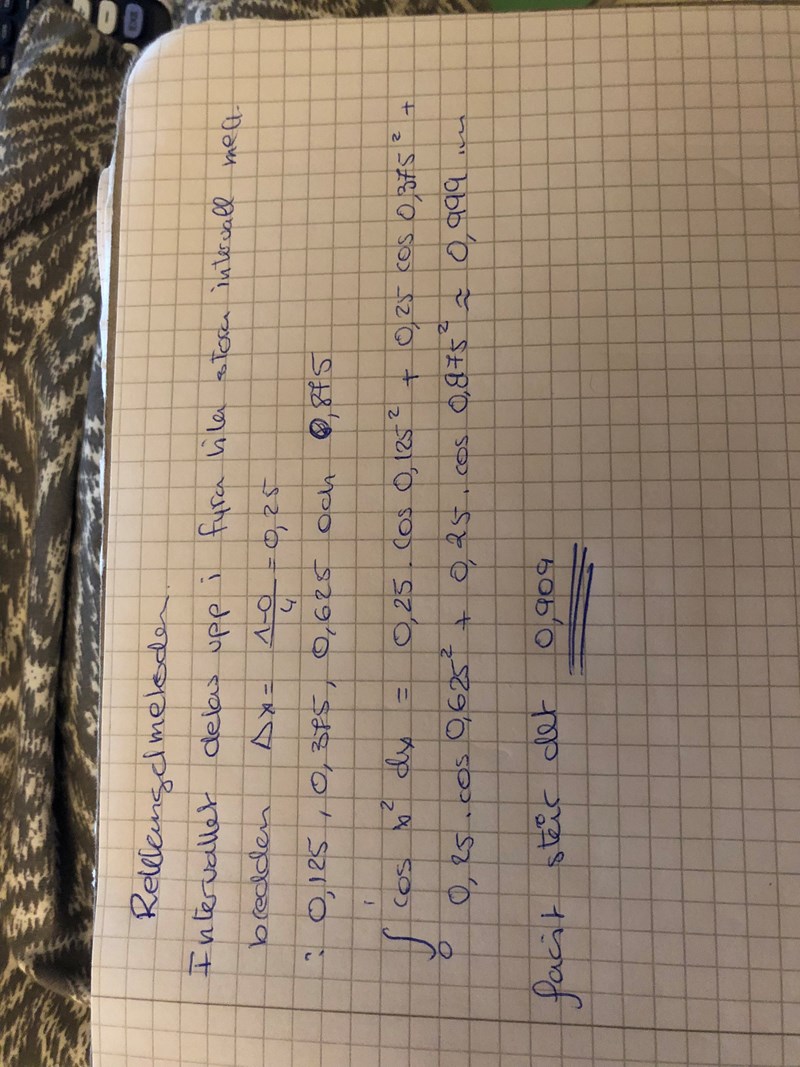 Rektangelmetoden.
Intervallet delas upp i fyra lika stora intervall med
bredden Δx = (1-0)/4 = 0,25
: 0,125, 0,375, 0,625 och 0,875
∫₀¹ cos x² dx = 0,25 · cos 0,125² + 0,25 cos 0,375² +
0,25 · cos 0,625² + 0,25 · cos 0,875² ≈ 0,999
facit står det 0,909
EXE